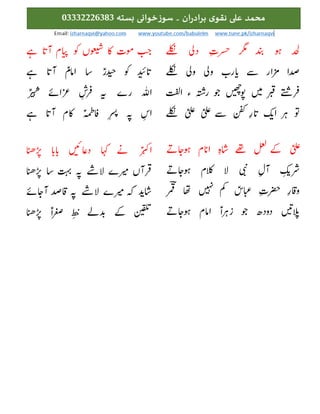 محمد علی نقوی برادران ۔ سوزخوانی بستہ 03332226383
Email: izharnaqvi@yahoo.com www.youtube.com/babulelm www.tune.pk/izharnaqvi
لحد ہو بند مگر حسرتِ دلی نکلے جب موت کا شیعوں کو پیام آتا ہے
صدا مزار سے یارب ولی ولی نکلے تائید کو حیدرؑ سا امامؑ آتا ہے
فرشتے قبر میں پوچھیں جو رشتہ ء الفت اللہ رے یہ فرشِ عزائے شبیرؑ
تو ہر ایک تارِ کفن سے علیؑ علیؑ نکلے اس پہ پسرِ فاطمہؑ کام آتا ہے
علیؑ کے لعل تھے شاہِ انام ہوجاتے اکبرؑ نے کہا دعائیں بابا پڑھنا
شریکِ آلِ نبی لا کلام ہوجاتے قرآں میرے لاشے پہ بہت سا پڑھنا
وقارِ حضرتِ عباسؑ کم نہیں تھا قمرؔ شاید کہ میرے لاشے پہ قاصد آجائے
پلاتیں دودھ جو زہراؑ امام ہوجاتے تلقین کے بدلے خطِ صغراؑ پڑھنا